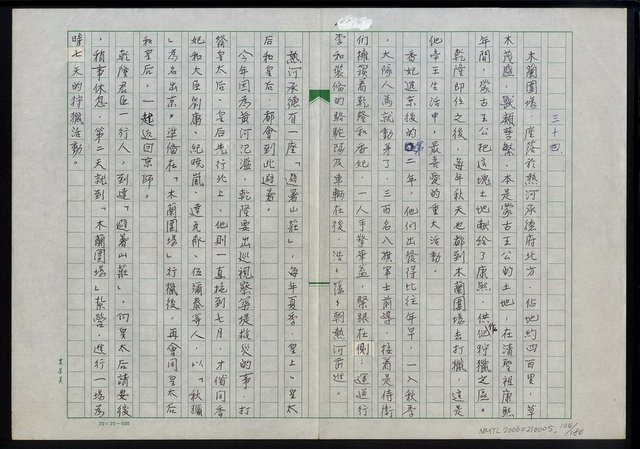 三十四
木蘭圍場，座落於熱河承德府北方，佔地約四百里，草
木茂盛，獸類繁繁，本是蒙古王公的土地，在清聖祖康熙
年間，蒙古王公把這塊土地献給了康熙，供他作狩獵之區。
乾隆即位之後，每年秋天也都到木蘭圍場去打獵，這是
他帝王生活中，最喜愛的重大活動。
香妃進京後的第二年，他們出發得比往年早，一入秋季
，大隊人馬就動身了，三百名八旗軍士前導，接着是侍衛
們擁簇着乾隆和香妃，一人手擎華蓋，緊跟在側，運送行
李和裝備的駱駝隊及車輛在後，浩浩蕩蕩朝熱河前進。
熱河承德有一座「避暑山莊」，每年夏季，皇上、皇太
后和皇后，都會到此避暑。
今年因為黃河氾濫，乾隆要出巡視察築堤救災的事，打
發皇太后、皇后先行北上，他則一直拖到七月，才偕同香
妃和大臣劉墉、紀曉嵐、達克隊、伍彌泰等人，以「秋獵
」為名出京。準備在「木蘭圍場」行獵後，再會同皇太后
和皇后，一起返回京師。
乾隆君臣一行人，到達「避暑山莊」，向皇太后請安後
，稍事休息，第二天就到「木蘭圍場」紮營，進行一場為
時七天的狩獵活動。
20×25=500
NMTL20060210005, 104/184